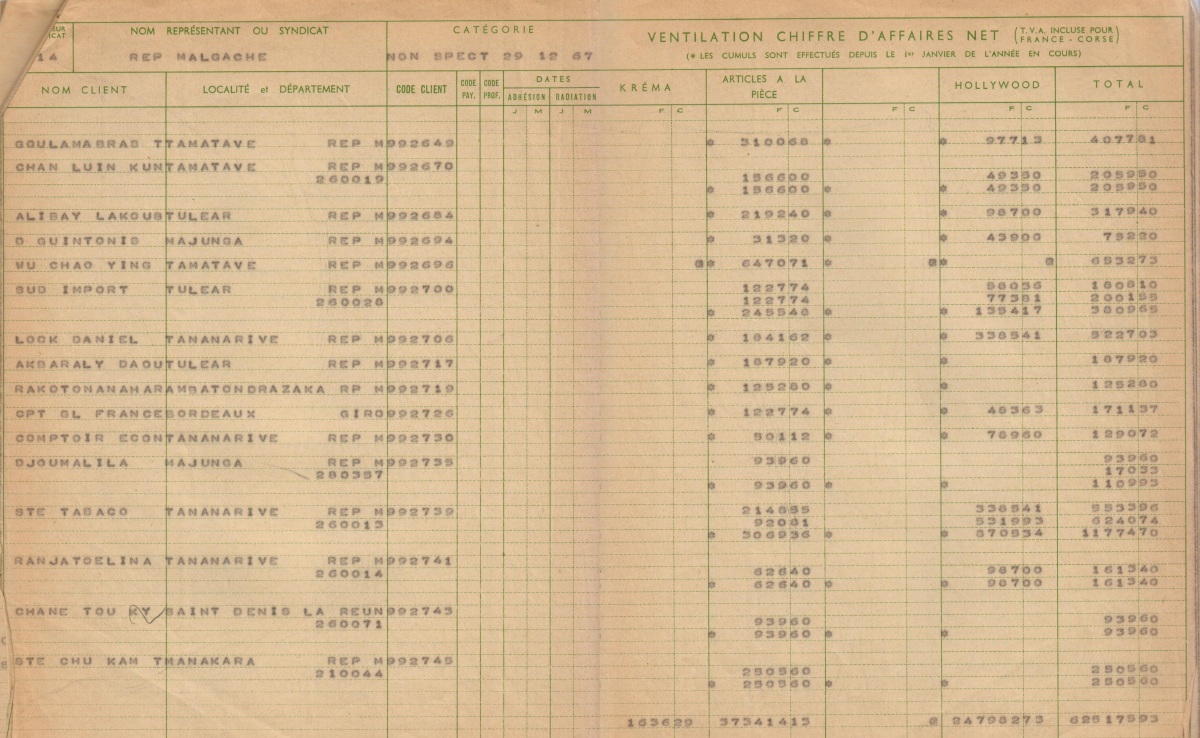 NOM REPRÉSENTANT OU SYNDICAT CATÉGORIE VENTILATION CHIFFRE D'AFFAIRES NET (T.V.A. INCLUSE POUR FRANCE - CORSE)
14 REP MALGACHE NON SPECT 29 12 67 (* LES CUMULS SONT EFFECTUÉS DEPUIS LE 1er JANVIER DE L'ANNÉE EN COURS)
NOM CLIENT LOCALITÉ et DÉPARTEMENT CODE CLIENT CODE PAY. CODE PROF. DATES ADHÉSION RADIATION KRÉMA ARTICLES A LA PIÈCE HOLLYWOOD TOTAL
J M J M F C F C F C F C F C
GOULAMABRAS TTAMATAVE REP M992649 * 310068 * * 97713 407781
CHAN LUIN KUNTAMATAVE REP M992670
260019 156600 49350 205950
* 156600 * * 49350 205950
ALIBAY LAKOUSTULEAR REP M992684 * 219240 * * 98700 317940
D QUINTONIS MAJUNGA REP M992694 * 31320 * * 43900 75220
WU CHAO YING TAMATAVE REP M992696 @* 647071 * @* @ 653273
SUD IMPORT TULEAR REP M992700 122774 58036 180810
260028 122774 77381 200155
* 245548 * 135417 380965
LOCK DANIEL TANANARIVE REP M992706 * 184162 * * 338541 522703
AKBARALY DAOUTULEAR REP M992717 * 187920 * * 187920
RAKOTONANAHARAMBATONDRAZAKA RP M992719 * 125280 * * 125280
CPT GL FRANCEBORDEAUX GIRO992726 * 122774 * * 48363 171137
COMPTOIR ECONTANANARIVE REP M992730 * 50112 * * 78960 129072
DJOUMALILA MAJUNGA REP M992735 93960 93960
280357 17033
* 93960 * * 110993
STE TABACO TANANARIVE REP M992739 214855 338541 553396
260013 92081 531993 624074
* 306936 * * 870534 1177470
RANJATOELINA TANANARIVE REP M992741
260014 62640 98700 161340
* 62640 * * 98700 161340
CHANE TOU KY SAINT DENIS LA REUN992743
260071 93960 93960
* 93960 * * 93960
STE CHU KAM TMANAKARA REP M992745
210044 250560 250560
* 250560 * * 250560
163629 37341413 @ 24798273 62517593